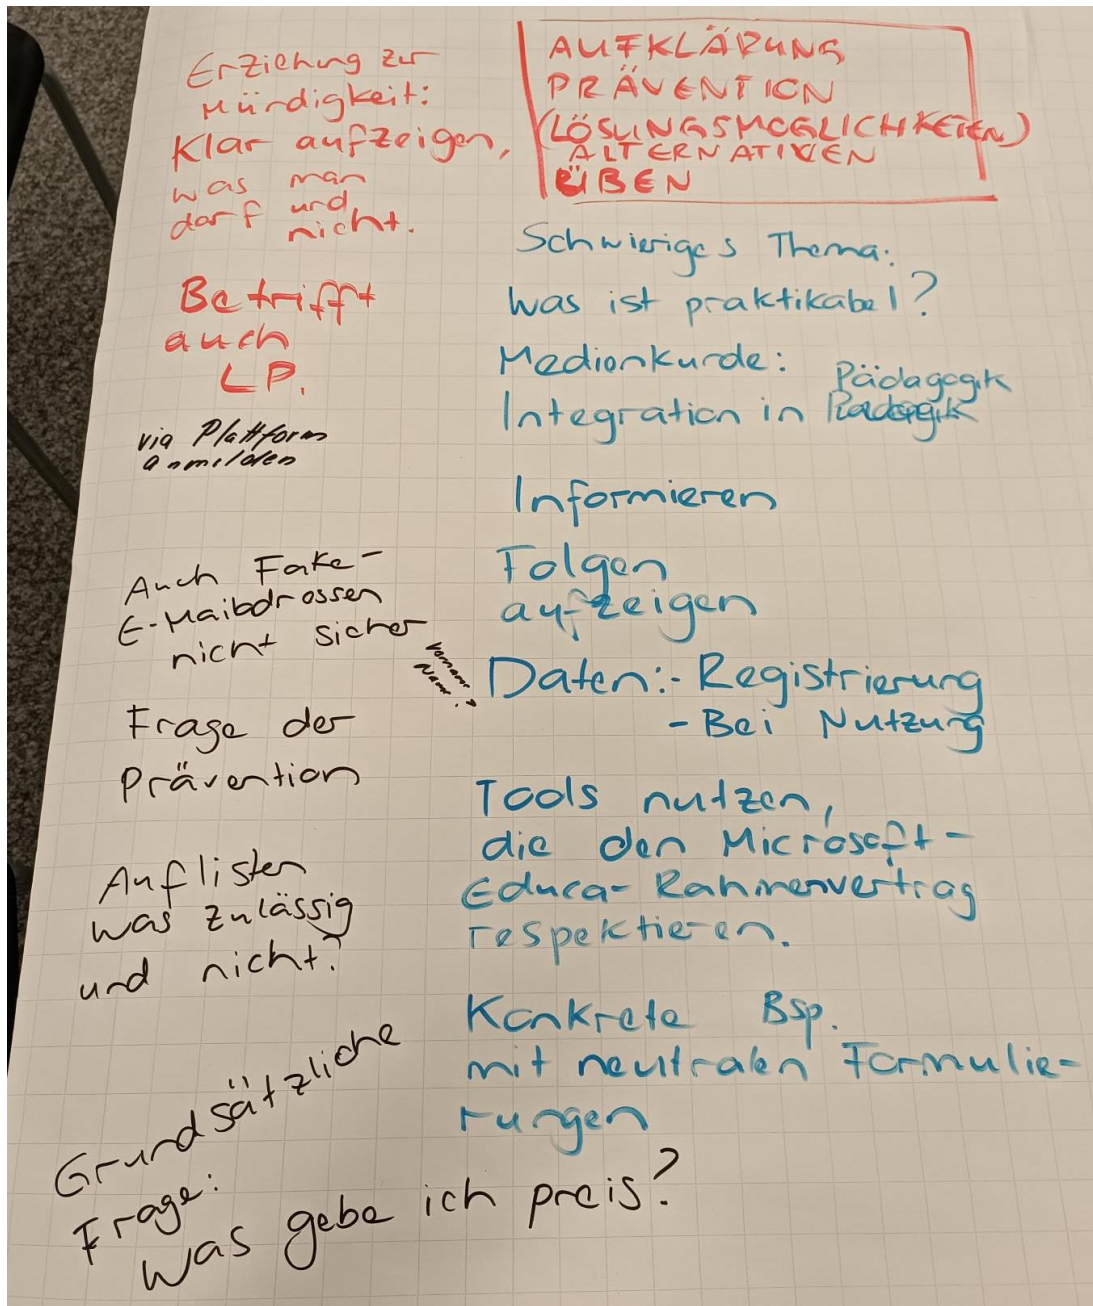 Erziehung zur
Mürdigkeit:
Klar aufzeigen,
was man
darf und
nicht.
Betrifft
auch
LP.
via Plattform
anmelden
Auch Fake-
E-Mailadressen
nicht sicher
Vorname
Name?
Frage der
Prävention
Auflisten
was zulässig
und nicht?
Grundsätzliche
Frage:
Was gebe ich preis?
AUFKLÄRUNG
PRÄVENTION
(LÖSUNGSMÖGLICHKEITEN)
ALTERNATIVEN
ÜBEN
Schwieriges Thema:
Was ist praktikabel?
Medienkunde:
Pädagogik
Integration in
Informieren
Folgen
aufzeigen
Daten:- Registrierung
- Bei Nutzung
Tools nutzen,
die den Microsoft-
Educa- Rahmenvertrag
respektieren.
Konkrete Bsp.
mit neutralen Formulie-
rungen